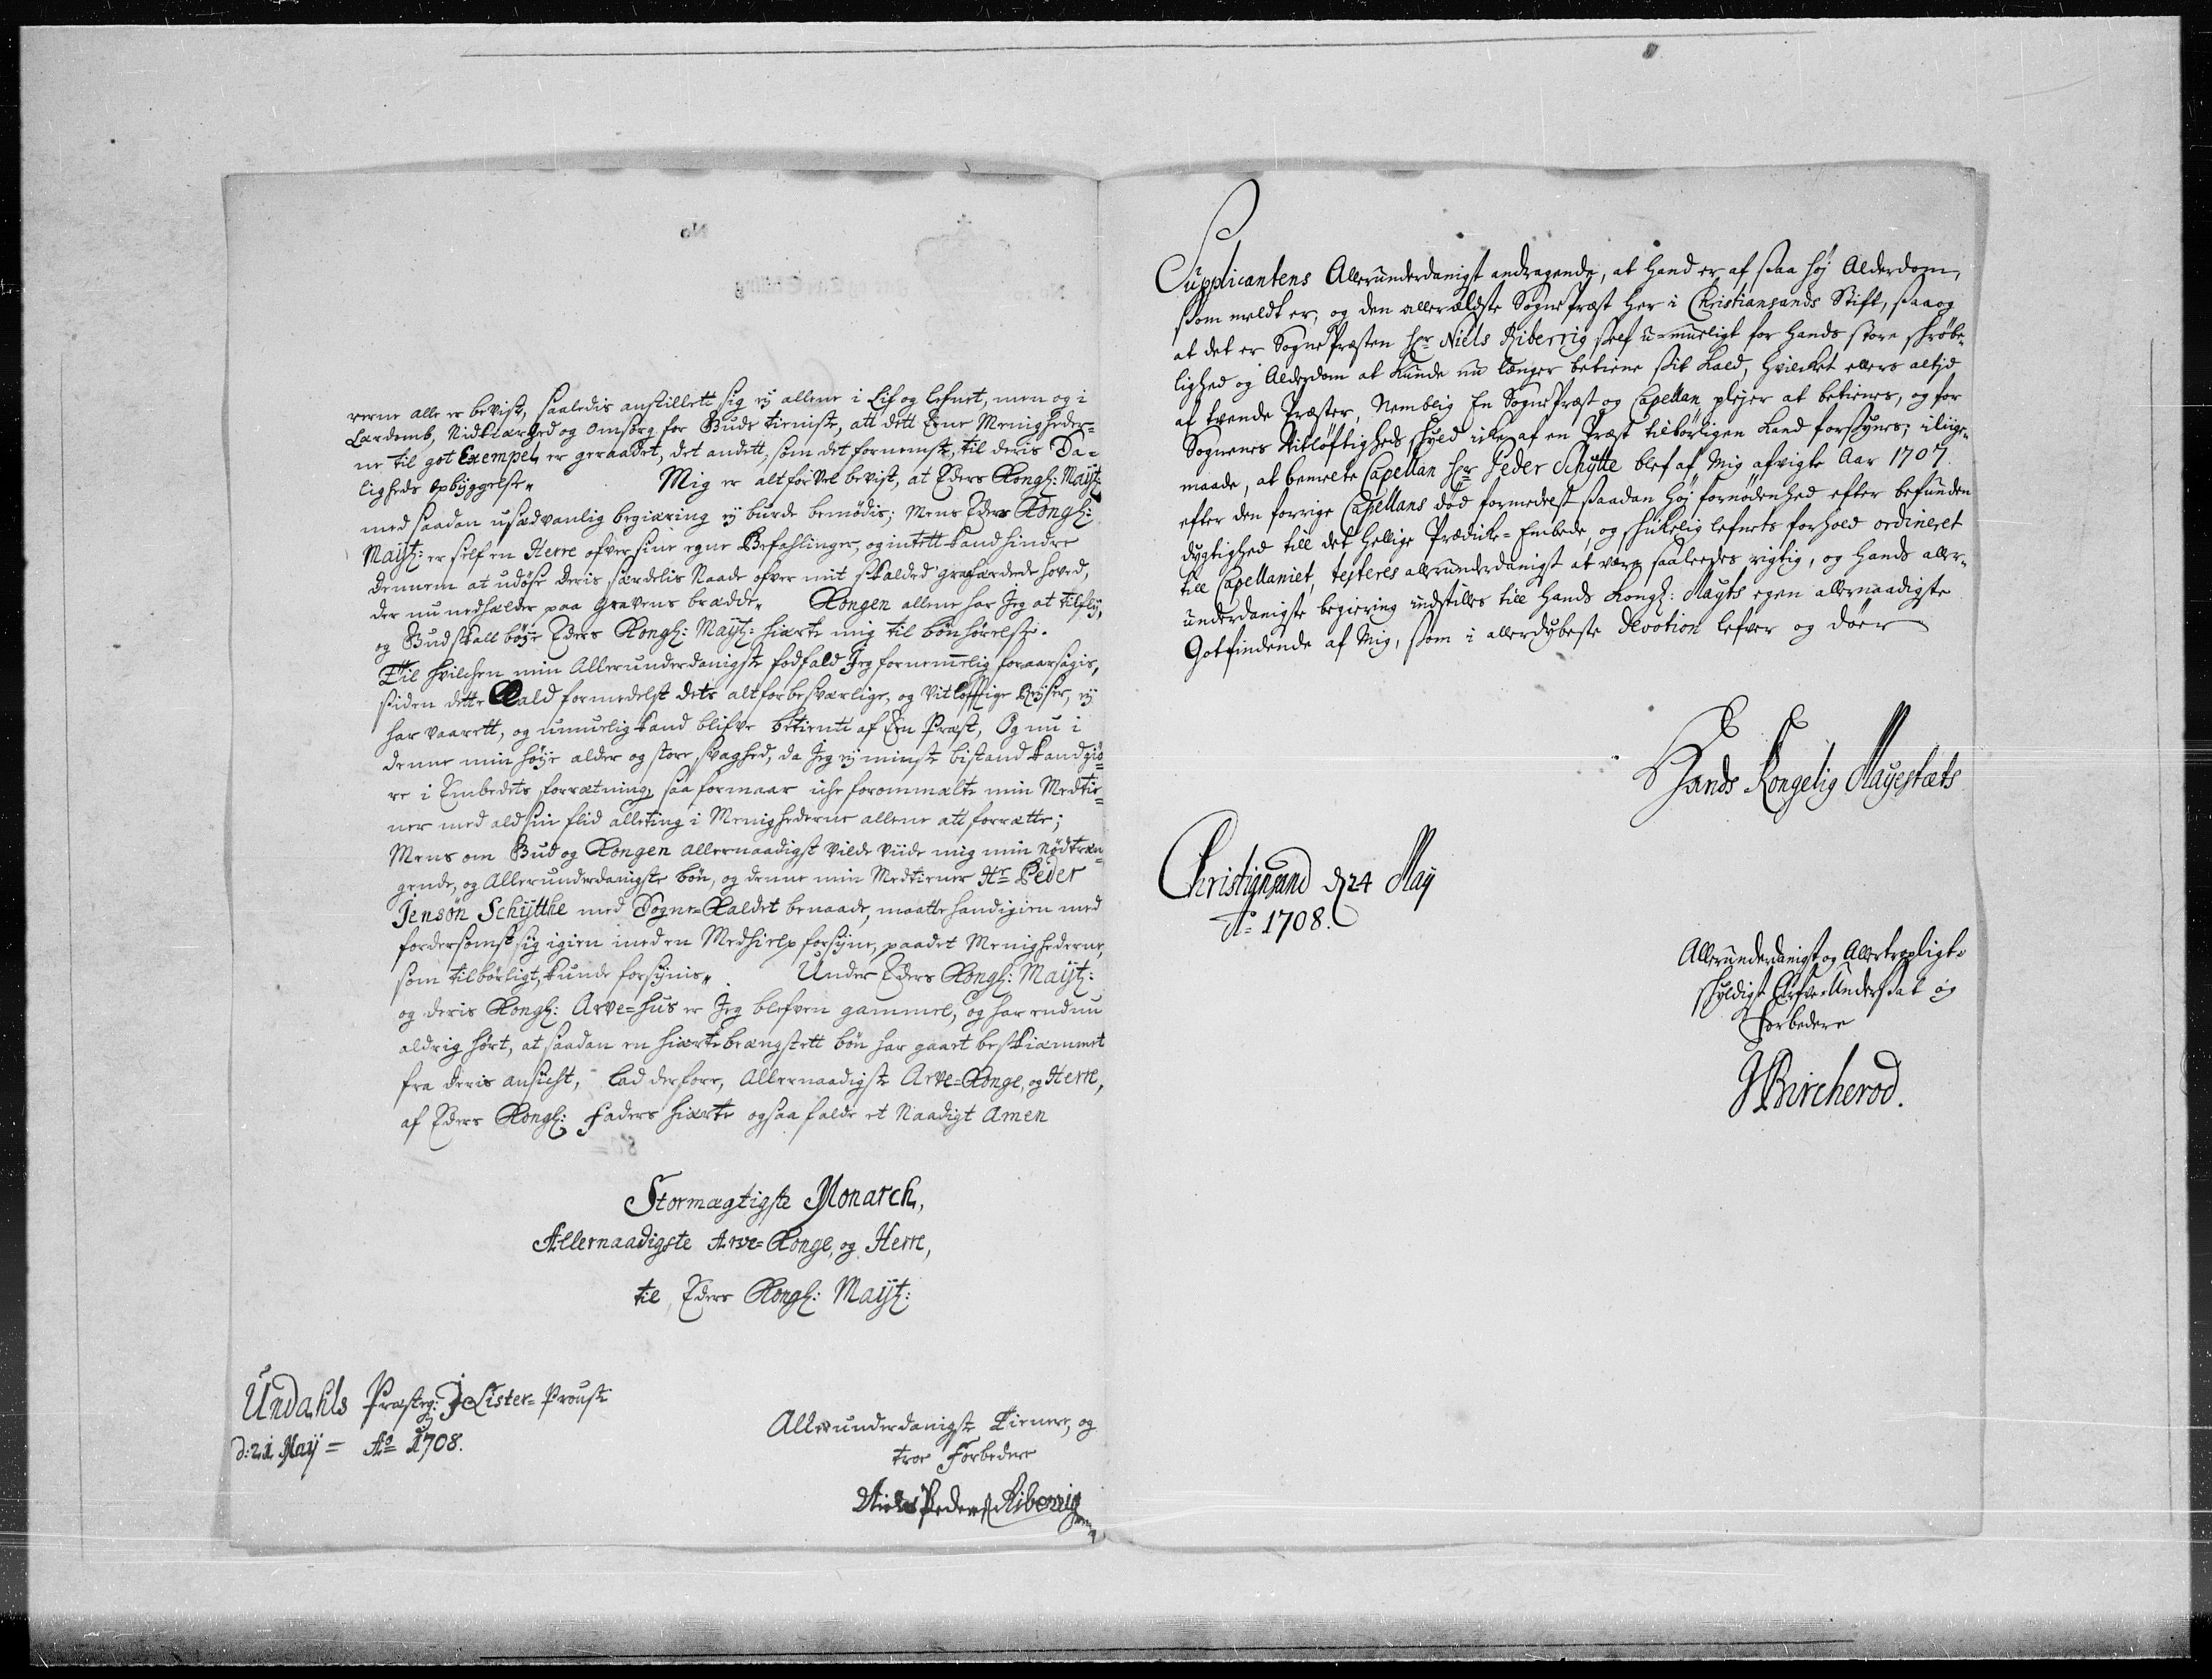 rerne alle er bevist, saaledis anstillett sig ej allene i Lif og lefnet, men og i
Lærdomb, Nidkiærhed og Omsorg for Guds tieniste, att dett Eene Menigheder-
ne til got Exempel, er geraadet, det andett, som det fornemste, til deris Sa-
ligheds Opbyggelse„ Mig er alt for vel bevist, at Eders Kongl: Mayt:
med saadan usædvanlig begiæring ej burde bemødis; Mens Eders Kongl:
Mayt: er self en Herre ofver sine egne Befahlinger, og intett kand hindre
dennem at udøse deris særdelis Naade ofver mit skalded graahærdede hoved,
der nu nedhælder paa gravens brædde„ Kongen allene har Jeg at tilfly,
og Gud skall bøye Eders Kongl: Mayt: hiærte mig til bønhørelse.
Til hvilchen min Allerunderdanigste fodfald Jeg fornemmelig foraarsagis,
siden dette Kald formedelst dets alt for besværlige, og vitløfftige Reyser, ej
har vaarett, og umuelig kand blifve betient af Een Præst, Og nu i
denne min høye alder og store svaghed, da Jeg ej minste bistand kand giø-
re i Embedets forrætning, saa formaar iche forommælte min Medtie-
ner med ald sin flid alleting i Menighederne allene att forrætte;
Mens om Gud og Kongen allernaadigst vilde viide mig min Nødtræn-
gende, og Allerunderdanigste bøn, og denne min Medtiener Hr Peder
Jensøn Schytthe med Sogne-Kaldet benaade, maatte hand igien med
fordersomst sig igien med en Medhielp forsyne, paa det Menighederne,
som tilbørligt, kunde forsynis„ Under Eders Kongl: Mayt:
og deris Kongl: Arve-hus er Jeg blefven gammel, og har endnu
aldrig hørt, at saadan en hiærtebeængstett bøn har gaaet beskiæmmet
fra deris ansicht, lad derfore, Allernaadigste Arve-Konge, og Herre,
af Eders Kongl: Faders hiærte ogsaa falde et Naadigt Amen
Stormægtigste Monarch,
Allernaadigste Arve-Konge, og Herre,
til Eders Kongl: Mayt:
Undahls Præsteg: J Lister-Proustie
d: 21 Maij = Ao 1708.
Allerunderdanigste Tienere, og
troe Forbedere
Niels Peders Riberrig
Supplicantens Allerunderdanigst andragende, at hand er af saa høj Alderdom,
som meldt er, og den allerældste SognePræst her i Christiansands Stift, saa og
at det er SognePræsten Hr Niels Riberrig self u-mueligt for hands store skrøbe-
lighed og Alderdom at kunde nu længer betiene sit kald, hvilcket ellers altjd
af tvende Præster, Nemblig En SognePræst og Capellan plejer at betienes, og for
Sognenes Vitløftigheds skyld icke af en Præst tilbørligen kand forsynes; i liige-
maade, at bemelte Capellan Hr Peder Schytte blef af Mig afvigte Aar 1707
efter den forrige Capellans død formedelst saadan høj fornødenhed efter befunden
dygtighed till det hellige Prædicke-Embede, og skikelig lefnets forhold ordineret
till Capellaniet, testeres allerunderdanigst at være saaleedes rigtig, og hands aller-
underdanigste begiering indstilles till Hands Kongl: Mayts egen allernaadigste
Gotfindende af Mig, som i allerdybeste Devotion lefver og döer
Hands Kongelig Mayestæts
Christiansand d 24 Maij
Ao 1708.
Allerunderdanigst og Allertropligt-
skyldigst Arfve-Undersaat og
Forbedere
JBircherod.